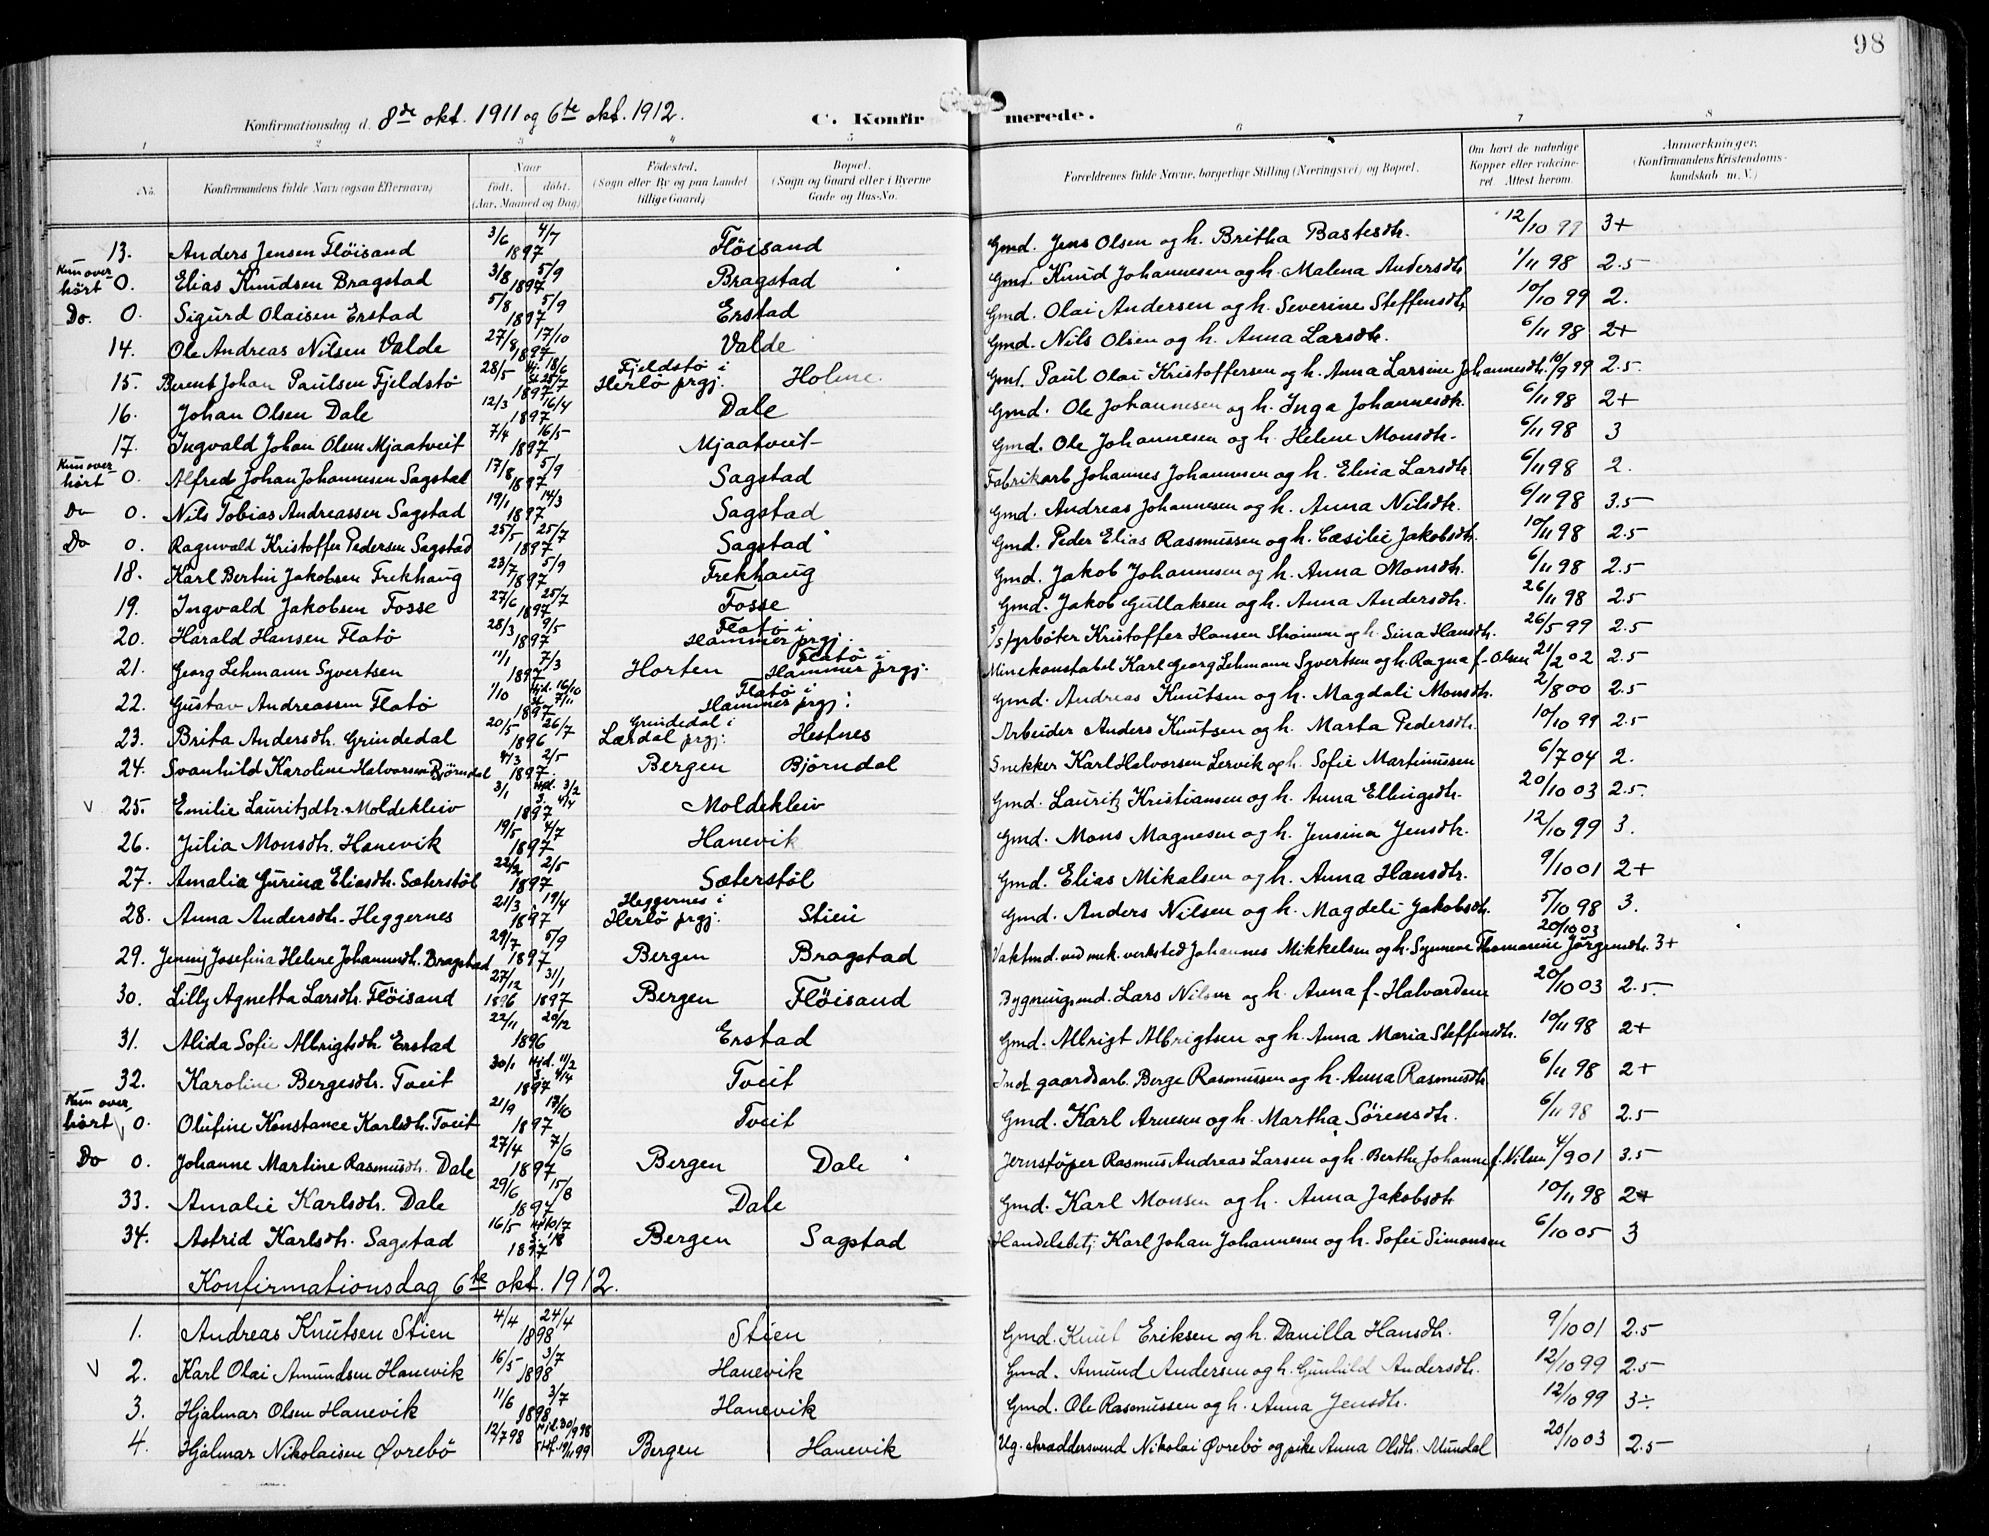 98
Konfirmationsdag d. 8de okt. 1911 og 6te okt. 1912. C. Konfir merede.
1 2 3 4 5 6 7 8
No. Konfirmandens fulde Navn (ogsaa Efternavn) Naar født. døbt. (Aar, Maaned og Dag) Fødested. (Sogn eller By og paa Landet tillige Gaard) Bopæl. (Sogn og Gaard eller i Byerne Gade og Hus-No. Forældrenes fulde Navne, borgerlige Stilling (Næringsvei) og Bopæl. Om havt de naturlige Kopper eller vakcineret. Attest herom. Anmærkninger. (Konfirmandens Kristendomskundskab m. V.)
13. Anders Jensen Fløisand 3/6 4/7 1897 Fløisand Gmd. Jens Olsen og h. Britha Bastesdtr. 12/10 99 3+
Kun overhørt 0. Elias Knudsen Bragstad 3/8 5/9 1897 Bragstad Gmd. Knud Johannesen og h. Malena Andersdtr 1/11 98 2.5
Do. 0. Sigurd Olaisen Erstad 5/8 5/9 1897 Erstad Gmd. Olai Andersen og h. Severine Steffensdtr 10/10 99 2.
14. Ole Andreas Nilsen Valde 27/8 17/10 1897 Valde Gmd. Nils Olsen og h. Anna Larsdtr. 6/11 98 2+
15. Berent Johan Paulsen Fjeldstø 28/5 Hj. 18/6 St. 25/7 1897 Fjeldstø i Herlø prgj. Holme Gmd. Paul Olai Kristoffersen og h. Anna Larsine Johannesdtr. 10/9 99 2.5
16. Johan Olsen Dale 12/3 16/4 1897 Dale Gmd. Ole Johannesen og h. Inga Johannesdtr. 6/11 98 2+
17. Ingvald Johan Olsen Mjaatveit 7/4 16/5 1897 Mjaatveit Gmd. Ole Johannesen og h. Helene Monsdtr. 6/11 98 3
Kun overhørt 0. Alfred Johan Johannesen Sagstad 17/8 5/9 1897 Sagstad Fabrikarb. Johannes Johannesen og h. Elina Larsdtr. 6/11 98 2.
Do 0. Nils Tobias Andreassen Sagstad 19/1 14/3 1897 Sagstad Gmd. Andreas Johannesen og h. Anna Nilsdtr. 6/11 98 3.5
Do 0. Ragnvald Kristoffer Pedersen Sagstad 25/5 25/7 1897 Sagstad Gmd. Peder Elias Rasmussen og h. Cæsilie Jakobsdtr. 10/11 98 2.5
18. Karl Bertin Jakobsen Frekhaug 23/7 5/9 1897 Frekhaug Gmd. Jakob Johannesen og h. Anna Monsdtr. 6/11 98 2.5
19. Ingvald Jakobsen Fosse 27/6 25/7 1897 Fosse Gmd. Jakob Gullaksen og h. Anna Andersdtr. 26/11 98 2.5
20. Harald Hansen Flatø 28/3 9/5 1897 Flatø i Hammer prgj. S/S fyrbøter Kristoffer Hansen Strømmen og h. Sina Hansdtr. 26/5 99 2.5
21. Georg Lehmann Syvertsen 11/1 7/3 1897 Horten Flatø i Hammer prgj. Minekonstabel Karl Georg Lehmann Syvertsen og h. Ragna f. Olsen 21/2 02 2.5
22. Gustav Andreassen Flatø 1/10 Hjd. 16/10 St. 7/11 1897 Flatø i Hammer prgj. Gmd. Andreas Knutsen og h. Magdali Monsdtr. 2/8 00 2.5
23. Brita Andersdtr. Grindedal 20/5 26/7 1896 Grindedal i Lærdal prgj. Hestnes Arbeider Anders Knutsen og h. Marta Pedersdtr. 10/10 99 2.5
24. Svanhild Karoline Halvorsen Bjørndal 4/3 2/5 1897. Bergen Bjørndal Snekker Karl Halvorsen Lervik og h. Sofie Martinussen 6/7 04 2.
V 25. Emilie Lauritzdtr. Moldekleiv 3/1 Hjd. 3/2 S. 4/4 1897 Moldekleiv Gmd. Lauritz Kristiansen og h. Anna Ellingsdtr. 20/10 03 2.5.
26. Julia Monsdtr. Hanevik 19/5 4/7 1897 Hanevik Gmd. Mons Magnesen og h. Jensina Jensdtr. 12/10 99 3.
27. Amalia Gurina Eliasdtr. Sæterstøl 22/2 2/5 1897 Sæterstøl Gmd. Elias Mikalsen og h. Anna Hansdtr. 9/10 01 2+
28. Anna Andersdtr. Heggernes 21/3 19/4 1897 Heggernes i Herlø prgj. Stien Gmd. Anders Nilsen og h. Magdeli Jakobsdtr. 5/10 98 3.
29. Jenny Josefina Helene Johannesdtr. Bragstad 29/7 5/9 1897 Bergen Bragstad Vaktmd. ved mek. verksted Johannes Mikkelsen og h. Synneve Thomasine Jørgensdtr. 20/10 03 3+
30. Lilly Agnetta Larsdtr. Fløisand 27/12 1896 31/1 1897 Bergen Fløisand Bygningsmd. Lars Nilsen og h. Anna f. Halvardsen 20/10 03 2.5.
31. Alida Sofie Albrigtsdtr. Erstad 22/11 20/12 1896 Erstad Gmd. Albrigt Albrigtsen og h. Anna Maria Steffensdtr. 10/11 98 2+
32. Karoline Bergesdtr. Tveit 30/1 Hjd. 11/2 S. 4/4 1897 Tveit Indt. gaardsarb. Berge Rasmussen og h. Anna Rasmusdtr 6/11 98 2+
Kun overhørt V 0. Olufine Konstance Karlsdtr. Tveit 21/9 17/10 1897 Tveit Gmd. Karl Arnesen og h. Martha Sørensdtr. 6/11 98 2.5
Do 0. Johanne Martine Rasmusdtr. Dale 27/4 7/6 1897 Bergen Dale Jernstøper Rasmus Andreas Larsen og h. Berthe Johanne f. Nilsen 4/9 01 3.5
33. Amalie Karlsdtr. Dale 29/6 15/8 1897 Dale Gmd. Karl Monsen og h. Anna Jakobsdtr 10/11 98 2+
34. Astrid Karlsdtr. Sagstad 16/5 Hj. 10/7 S. 1/8 1897 Bergen Sagstad Handelsbetj. Karl Johan Johannesen og h. Sofie Simonsen 6/10 05 3
Konfirmationsdag 6te okt. 1912.
1. Andreas Knutsen Stien 4/4 24/4 1898 Stien Gmd. Knut Eriksen og h. Danilla Hansdtr. 9/10 01 2.5
V 2. Karl Olai Amundsen Hanevik 16/5 3/7 1898 Hanevik Gmd. Amund Andersen og h. Gunhild Andersdtr. 12/10 99 2.5
3. Hjalmar Olsen Hanevik 11/6 3/7 1898 Hanevik Gmd. Ole Rasmussen og h. Anna Jensdtr. 12/10 99 3÷
4. Hjalmar Nikolaisen Øvrebø 12/7 98 Hjd. 30/9 98 19/11 99 Bergen Hanevik Ug. skræddersvend Nikolai Øvrebø og pike Anna Olsdtr. Mundal 20/10 03 2.5